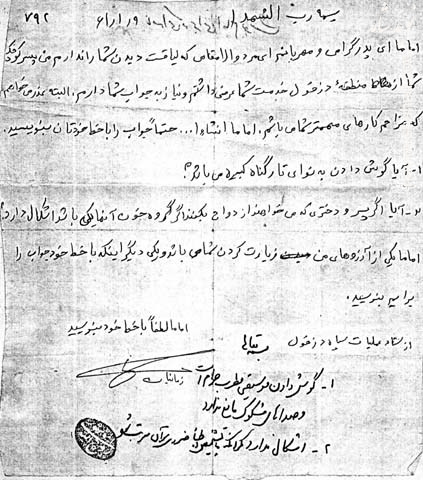 بسم رب الشهداء ۷۹۲
اماما ای پدر گرامی و مهربانم ای مرد والامقامی که لیاقت دیدن شما را ندارم من پسر کوچک
شما از منطقهٔ دزفول خدمت شما عرضی داشتم و نیاز به جواب شما دارم. البته عذر می‌خواهم
که مزاحم کارهای مهمتر شما می باشم. اماما انشاءا... حتماً جواب را با خط خودتان بنویسید.
۱- آیا گوش دادن به نوای تار گناه کبیره می باشد؟
۲- آیا اگر پسر و دختری که می خواهند ازدواج بکنند اگر گروه خون آنها یکی باشد اشکال دارد؟
اماما یکی از آرزوهای من زیارت کردن شما می باشد و یکی دیگر اینکه با خط خود جواب را
برایم بنویسید.
اماما لطفاً با خط خود بنویسید
از ستاد عملیات سپاه دزفول
بسمه تعالی
۱- گوش دادن موسیقی مطرب حرام است
و صداهای مشکوک مانع ندارد
۲- اشکال ندارد